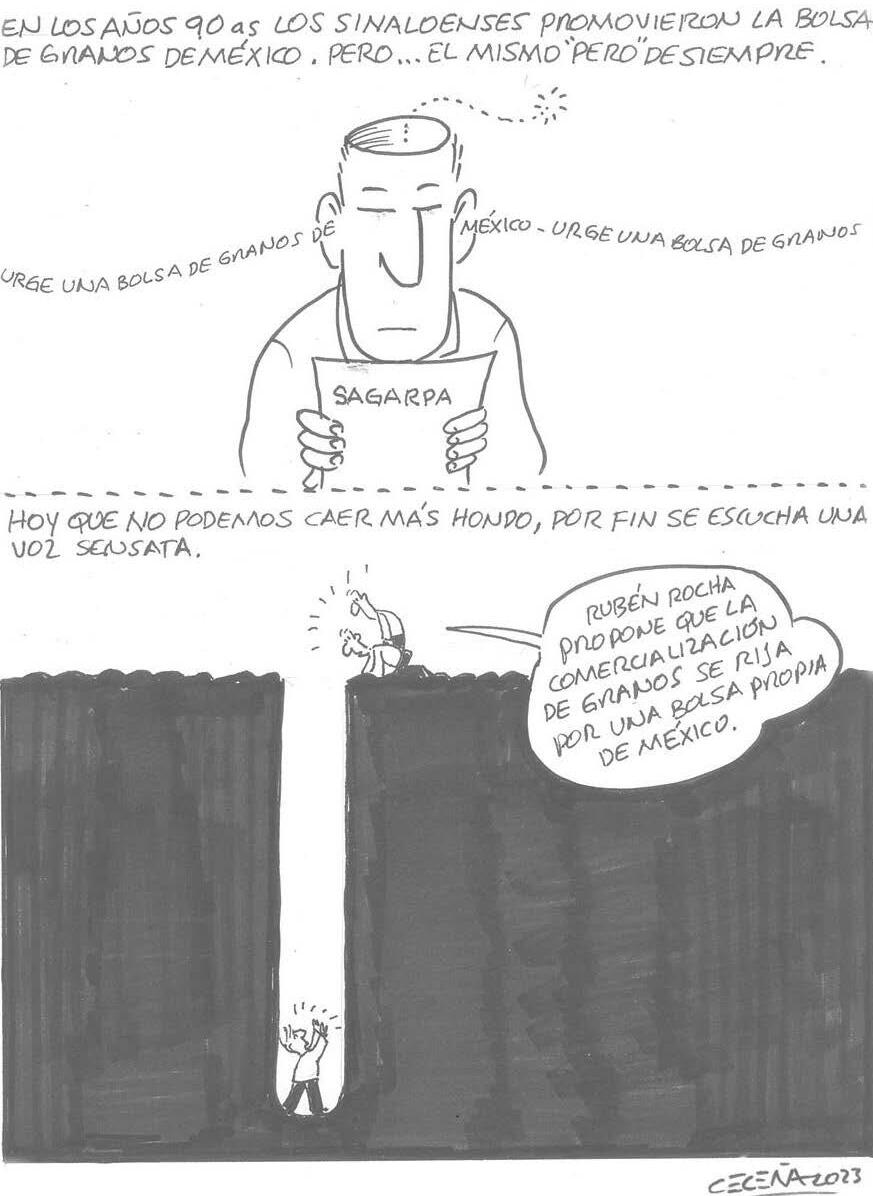 EN LOS AÑOS 90 as LOS SINALOENSES PROMOVIERON LA BOLSA
DE GRANOS DE MÉXICO. PERO... EL MISMO "PERO" DE SIEMPRE.
URGE UNA BOLSA DE GRANOS DE MÉXICO - URGE UNA BOLSA DE GRANOS
SAGARPA
HOY QUE NO PODEMOS CAER MÁS HONDO, POR FIN SE ESCUCHA UNA
VOZ SENSATA.
RUBÉN ROCHA
PROPONE QUE LA
COMERCIALIZACIÓN
DE GRANOS SE RIJA
POR UNA BOLSA PROPIA
DE MÉXICO.
CECEÑA 2023